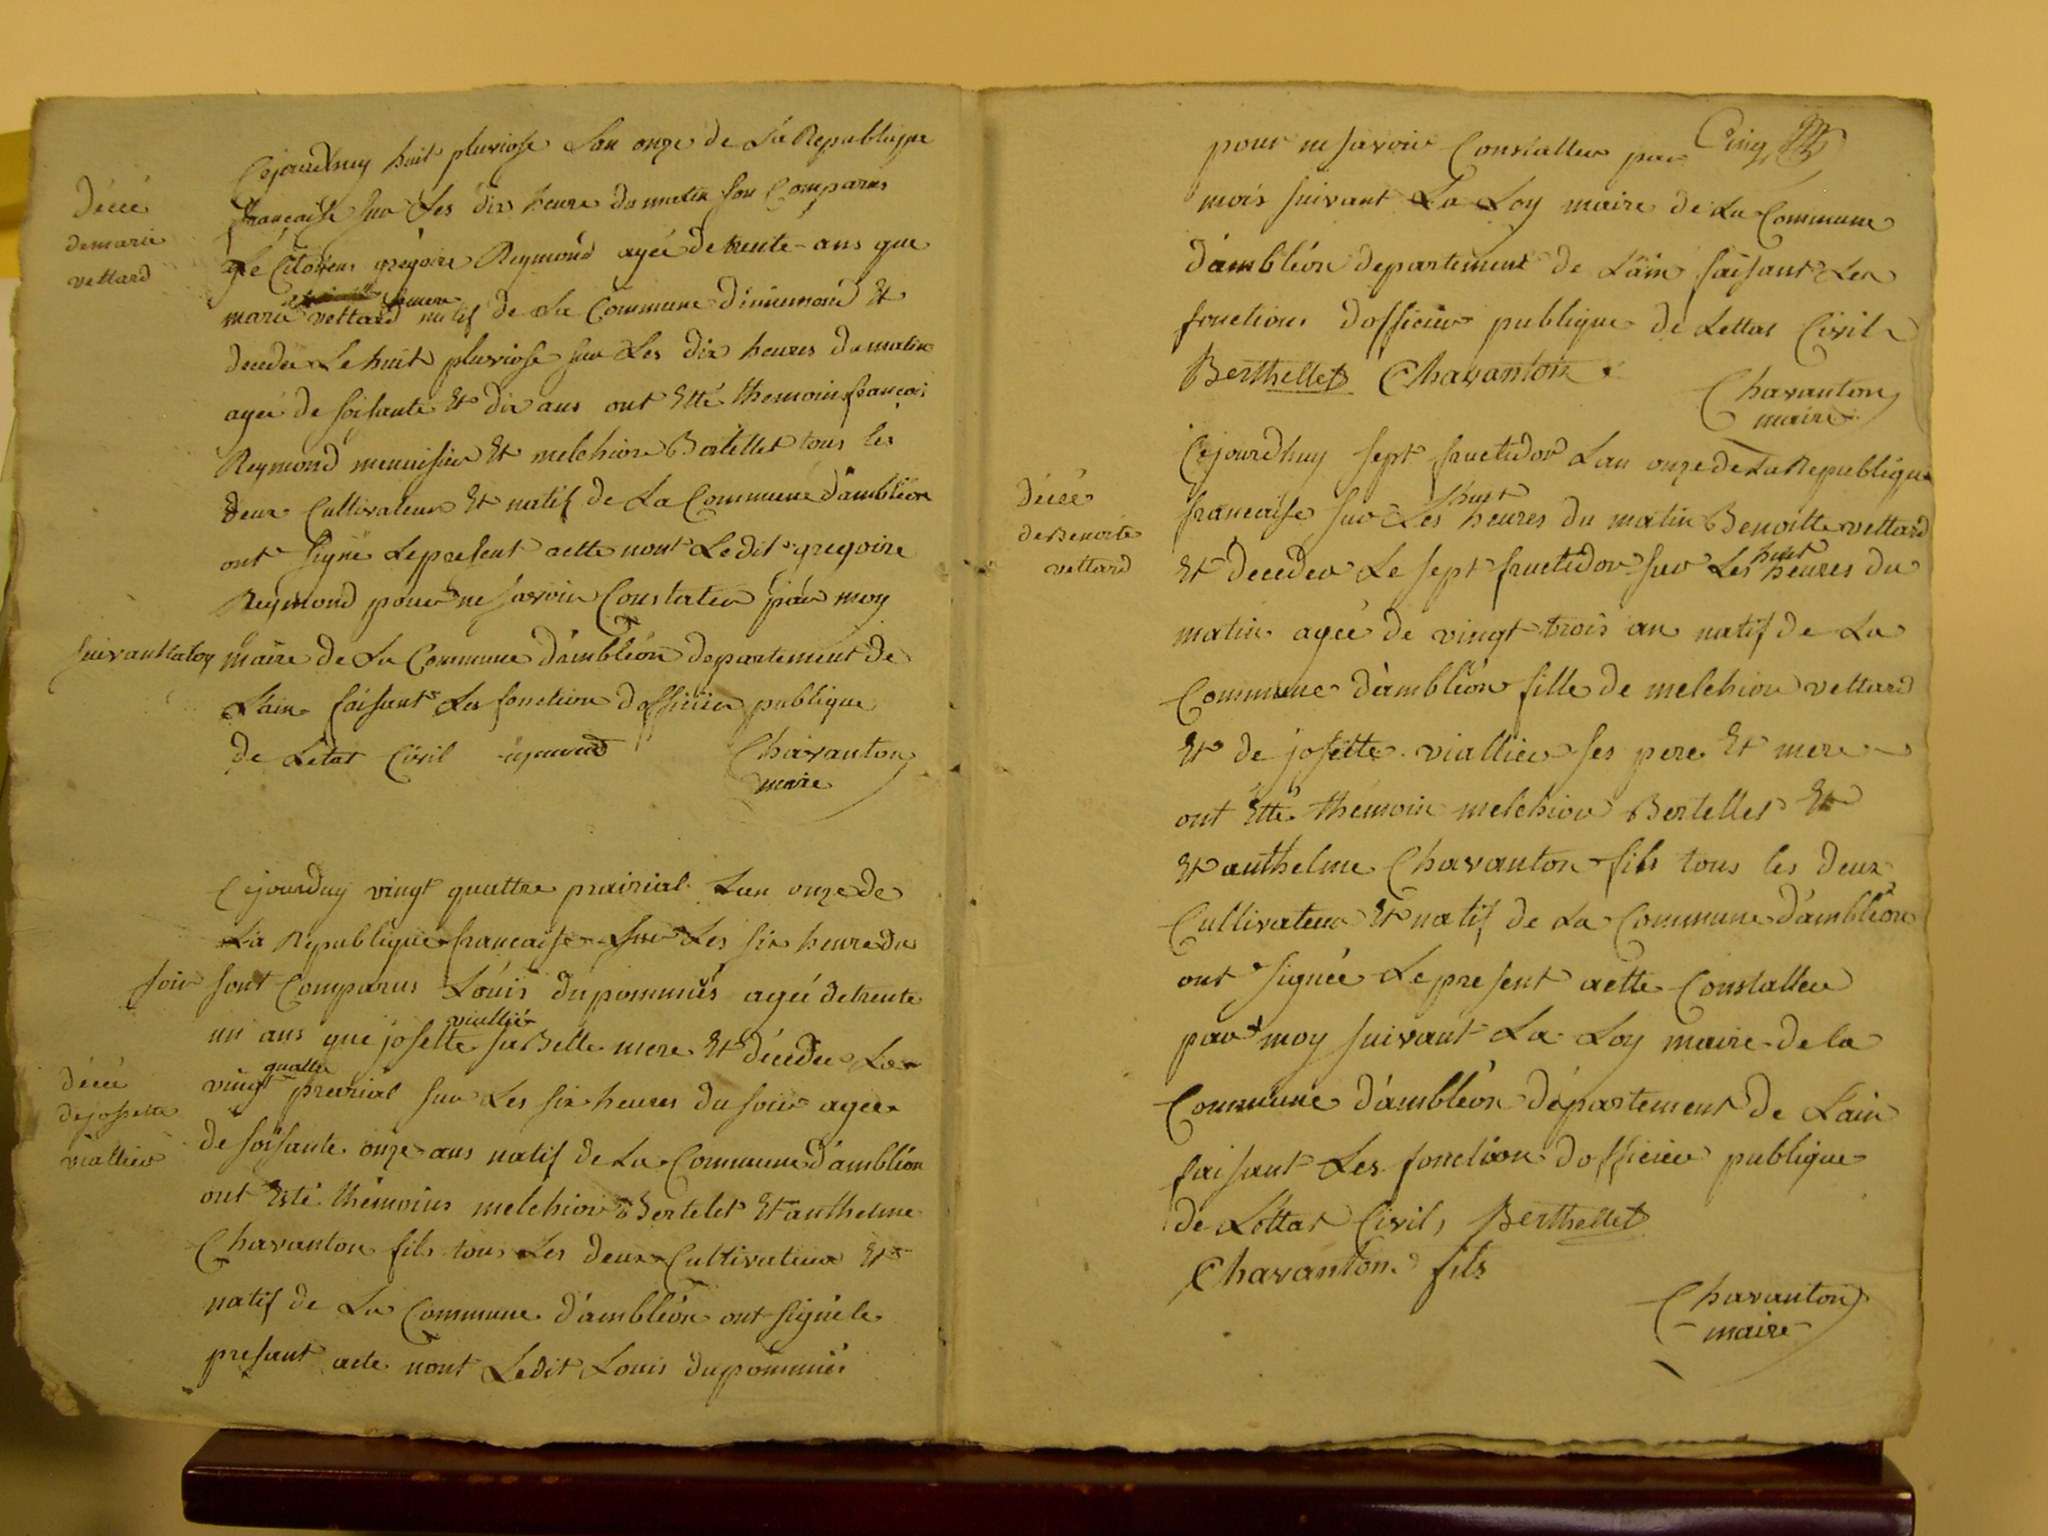 Cejourdhuy huit pluviose Lan onze de La Republique
decee
demarie
vettard
francaise sur Les dix heure du matin son Comparus
Le Citoyens gregoire Reymond agée de trente ans que
sa mere
marie vettard natif de La Commune dinnimond Et
decedée Le huit pluviose sur Les dix heures du matin
agée de soisante Et dix ans ont Etté themoin francois
Reymond menuisier Et melchior Bertellet tous les
deux Cultivateur Et natif de La Commune d'ambléon
ont signé Lepresent actte nont Ledit gregoire
Reymond pour ne savoir Constater par moy
suivantlaloy maire de La Commune d'ambléon departement de
L'ain faisant Les fonction dofficier publique
de Létat Civil Chavanton
maire
Cejourduy vingt quattre prairial Lan onze de
La Republique francaise sur Les six heure du
soir sont Comparus Loüis dupommiés agée detrente
viallié
un ans que josette sa Belle mere Et décédée Le
quattre
vingt prerial sur Les six heures du soir agée
decé
dejosette
viallier
de soisante onze ans natif de La Commune d'ambléon
ont Esté thémoins melchior Bertelet Et anthelme
Chavanton fils tous Les deux Cultivateur Et
natif de La Commune d'ambléon ont signé le
presant acte nont Ledit Louis dupommiés
Cinq
pour ne savoir Constatter par
mois suivant La Loy maire de La Commune
d'ambléon departement de L'ain faisant Les
fonctions dofficier publique de Lettat Civil
Berthellet Chavanton
Chavanton
maire
Cejourdhuy sept fructidor Lan onze de La Republique
decée
de Benoite
vettard
huit
francaise sur Les heures du matin Benoitte vettard
huit
Et decedée Le sept fructidor sur Les heures du
matin agée de vingt trois an natif de La
Commune d'ambléon fille de melchior vettard
Et de josette viallier ses pere Et mere
ont Etté thémoin melchior Bertellet Et
Et anthelme Chavanton fils tous les deux
Cultivateur Et natif de La Commune d'ambléon
ont signée Le present actte Constattée
par moy suivant La Loy maire de la
Commune d'ambléon département de L'ain
faisant Les fonction dofficier publique
de Lettat Civil, Berthellet
Chavanton fils
Chavanton
maire